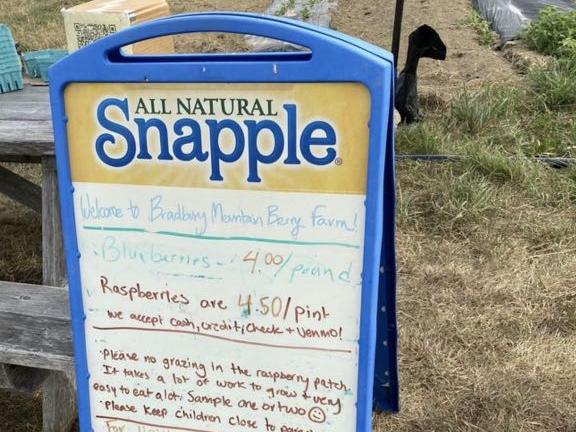 ALL NATURAL
Snapple
Welcome to Bradbury Mountain Berry Farm!
Blueberries - 4.00/pound
Raspberries are 4.50/pint
We accept cash, credit, check + Venmo!
· Please no grazing in the raspberry patch.
It takes a lot of work to grow + very
easy to eat a lot. Sample one or two ☺
· Please keep children close to
For